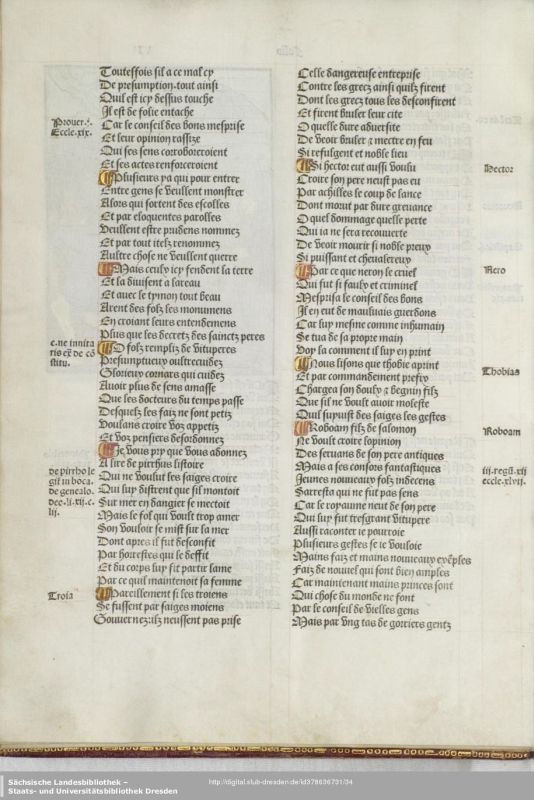 Toutesfois sil a ce mal cy
De presumption. tout ainsi
Quil est icy dessus touche
Il est de folie entache
Car le conseil des bons mesprise
Et leur opinion rassize
Qui ses sens corroboreroient
Et ses actes renforceroient
Plusieurs ya qui pour entrer
Entre gens se veullent monstrer
Alors qui sortent des escolles
Et par eloquentes parolles
Veullent estre prudens nommez
Et par tout telz renommez
Aultre chose ne veullent querre
Mais ceulx icy fendent la terre
Et la divisent a lareau
Et avec le tymon tout beau
Arent des folz les monumens
En croiant leurs entendemens
Plus que les decretz des sainctz peres
O folz rempliz de vituperes
Presumptueux oultrecuidez
Glorieux cornars qui cuidez
Avoir plus de sens amasse
Que les docteurs du temps passe
Desquelz les faiz ne sont petiz
Voulans croire voz appetiz
Et voz pensiers desordonnez
Je vous pry que vous adonnez
A lire de pirrhus listoire
Qui ne voulut les saiges croire
Qui luy distrent que sil montoit
Sur mer en dangier se mectoit
Mais le fol qui voult trop amer
Son vouloir se mist sur la mer
Dont apres il fut desconfit
Par horrestes qui le deffit
Et du corps luy fit partir lame
Par ce quil maintenoit sa femme
Pareillement si les troiens
Se fussent par saiges moiens
Gouvernez: ilz neussent pas prise
Prover. i.
Eccle. xix.
c. ne innita
ris ex de cõ
stitu.
de pirrho le
git in boca.
de genealo.
deo. li. xii. c.
lij.
Troia
Celle dangereuse entreprise
Contre les grecz ainsi quilz firent
Dont les grecz tous les desconfirent
Et firent bruler leur cite
O quelle dure adversite
De veoir bruler ⁊ mectre en feu
Si refulgent et noble lieu
Si hector eut aussi voulu
Croire son pere neust pas eu
Par achilles le coup de lance
Dont morut par dure grevance
O quel dommage quelle perte
Qui ia ne sera recouverte
De veoir mourir si noble preux
Si puissant et chevalereux
Par ce que neron le cruel
Qui fut si faulx et criminel
Mesprisa le conseil des bons
Il en eut de maulvais guerdons
Car luy mesme comme inhumain
Se tua de sa propre main
Voy la comment il luy en print
Nous lisons que thobie aprint
Et par commandement prefix
Chargea son doulx ⁊ begnin filz
Que sil ne voult avoir moleste
Quil suyvist des saiges les gestes
Roboam filz de salomon
Ne voult croire lopinion
Des servans de son pere antiques
Mais a ses consors fantastiques
Jeunes nouveaux folz indecens
Sarresta qui ne fut pas sens
Car le royaume neut de son pere
Qui luy fut tresgrant vitupere
Aussi raconter ie pourroie
Plusieurs gestes se ie vouloie
Mains faiz et mains nouveaux exẽples
Faiz de nouvel qui sont bien amples
Car maintenant mains princes sont
Qui chose du monde ne font
Par le conseil de vielles gens
Mais par vng tas de gorriers gentz
Hector
Nero
Thobias
Roboam
iij. regũ. xij
eccle. xlvij.
Sächsische Landesbibliothek –
Staats- und Universitätsbibliothek Dresden
http://digital.slub-dresden.de/id378636731/34